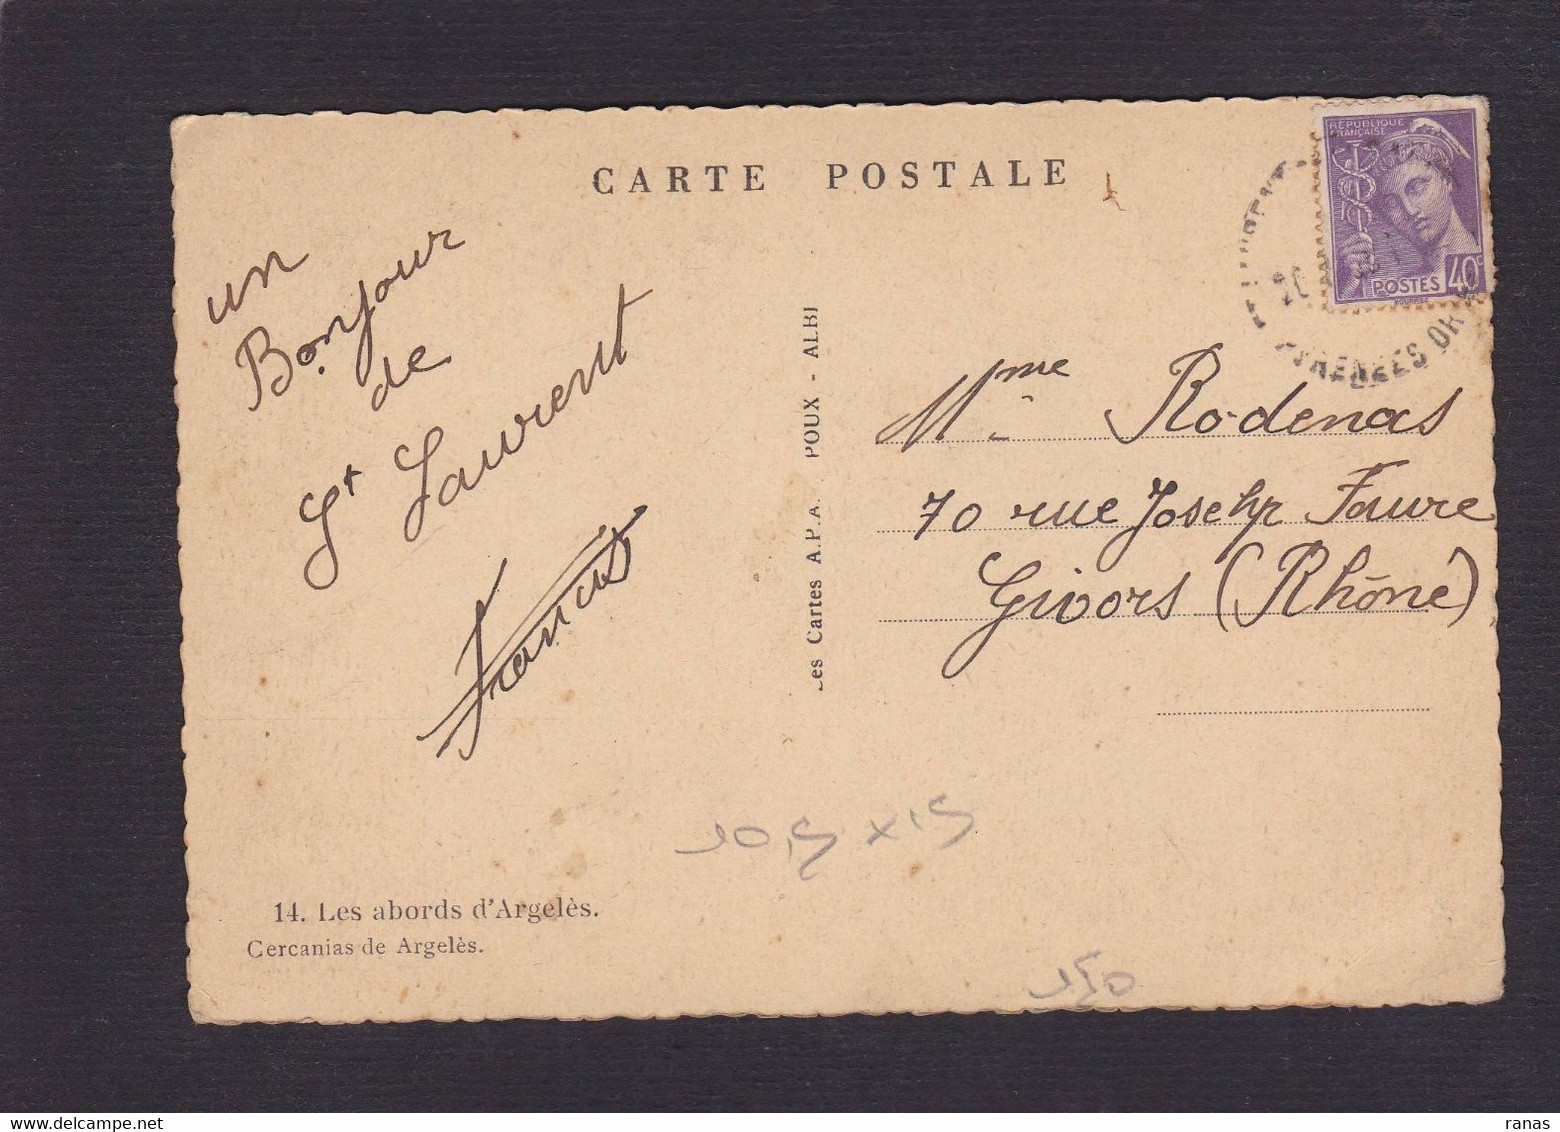 CARTE POSTALE
RÉPUBLIQUE
FRANÇAISE
POSTES 40c
PYRENEES OR
un
Bonjour
de
St Laurent
Francis
Mme Rodenas
70 rue Joseph Faure
Givors (Rhône)
Les Cartes A.P.A. POUX - ALBI
10,5 x 15
14. Les abords d'Argelès.
Cercanias de Argelès.
150
ranas